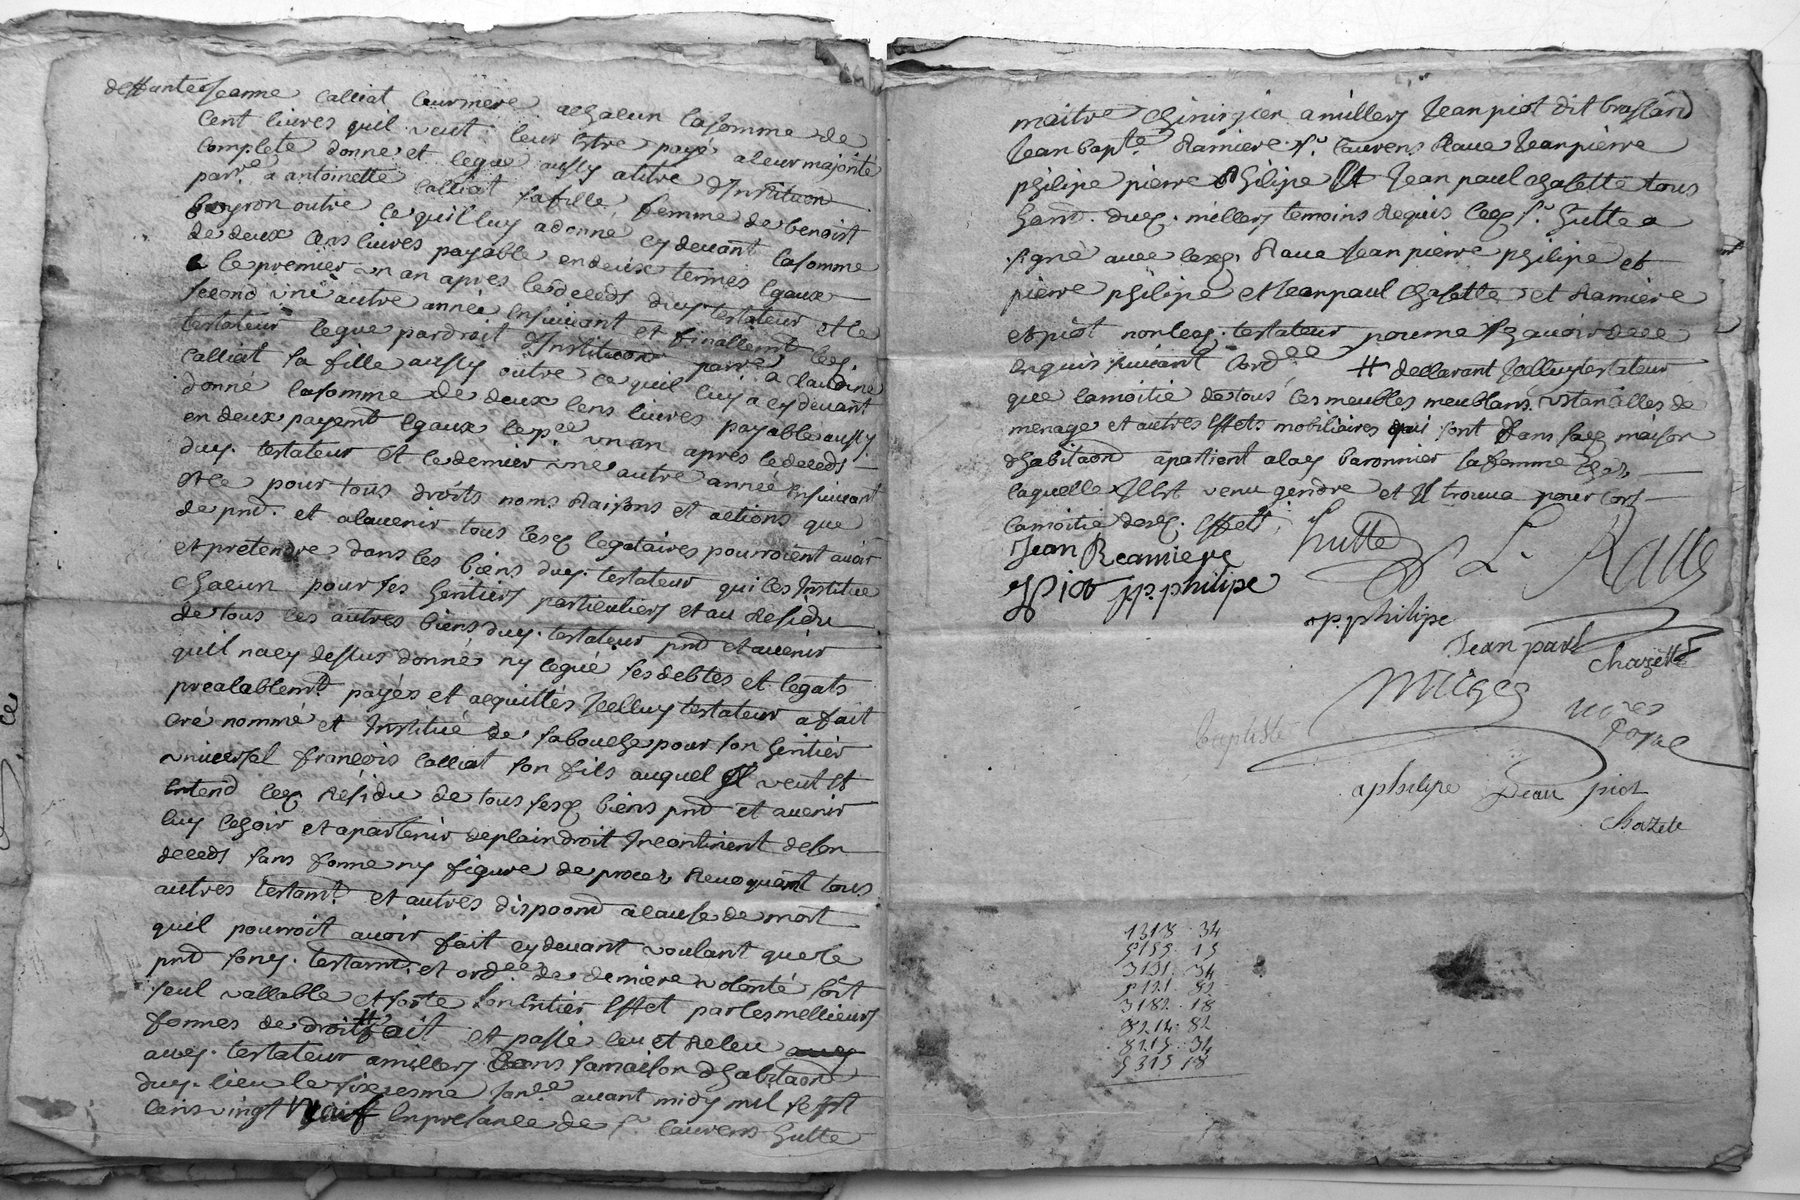 deffunte Jeanne Calliat leur mere a chacun la somme de
cent livres quil veut leur estre payé a leur majorité
complete donne et legue aussy a titre d'Institu͠on
parre a antoinette Calliat sa fille femme de benoist
beyron outre ce quil luy a donné cy devant la somme
de deux Cens livres payable en deux termes Egaux
le premier un an apres le deceds duy. testateur et le
second une autre année Ensuivant et finallemt led.
testateur legue par droit d'Institu͠on parre a claudine
Calliat sa fille aussy outre ce quil luy a cy devant
donné la somme de deux Cens livres payable aussy
en deux payemt Egaux le pee un an apres le deceds
duy. testateur Et le dernier une autre année Ensuivant
Et ce pour tous droits noms Raisons et actions que
de pnt. et alavenir tous lesq legataires pourroient avoir
et pretendre dans les biens duy. testateur qui les Institue
chacun pour ses heritiers particuliers et au Residu
de tous les autres biens duy. testateur pnt et avenir
quil na cy dessus donné ny legué ses debtes et legats
prealablemt payés et acquittés Jcelluy testateur a fait
cré nommé et Institué de sa bouche pour son heritier
universel francois Calliat son fils auquel Il veut Et
Entend leq Residu de tous sesq biens pnt et avenir
luy Echoir et apartenir deplain droit Incontinent de son
deceds sans forme ny figure de proces Revoquant tous
autres testamt. et autres dispoõnt a cause de mort
quil pourroit avoir fait cy devant voulant que le
pnt sony. testamt. et ordee de derniere volonté soit
seul vallable et sorte son Entier Effet par les mellieurs
formes de droit # fait et passé leu et Releu auy
auy. testateur a millery dans sa maison d'habita͠on
duy. lieu le sixiesme janee avant midy mil sept
cens vingt Neuf En presance de sr. laurens hutte
maitre chirurgien a millery Jean piot dit brossard
Jean bapte. Ramiere sr. laurens Rave Jean pierre
philipe pierre philipe Et Jean paul chasette tous
hant. duq. millery temoins Requis leq sr hutte a
signé avec lesq. Rave Jean pierre philipe et
pierre philipe et Jean paul Chasette et Ramiere
et piot non leq. testateur pour ne sçavoir dece
Enquis suivant lordee # declarant Jcelluy testateur
que la moitie de tous les meubles meublans ustancilles de
menage et autres Effets mobiliaires qui sont dans saq maison
d'habita͠on apartient a laq baronnier sa femme chés
laquelle Il Est venu gendre et Il trouva pour lors
la moitie desq. Effets.
Jean Reamiere hutte L. Rave
JPiot jp. philipe
p. philipe
Jean paul Chazette
Baptiste
royal
aphilipe Jean piot
Chazete
1318 34
5155 15
3131 34
5121 82
3182 18
8214 82
8215 34
5315 18